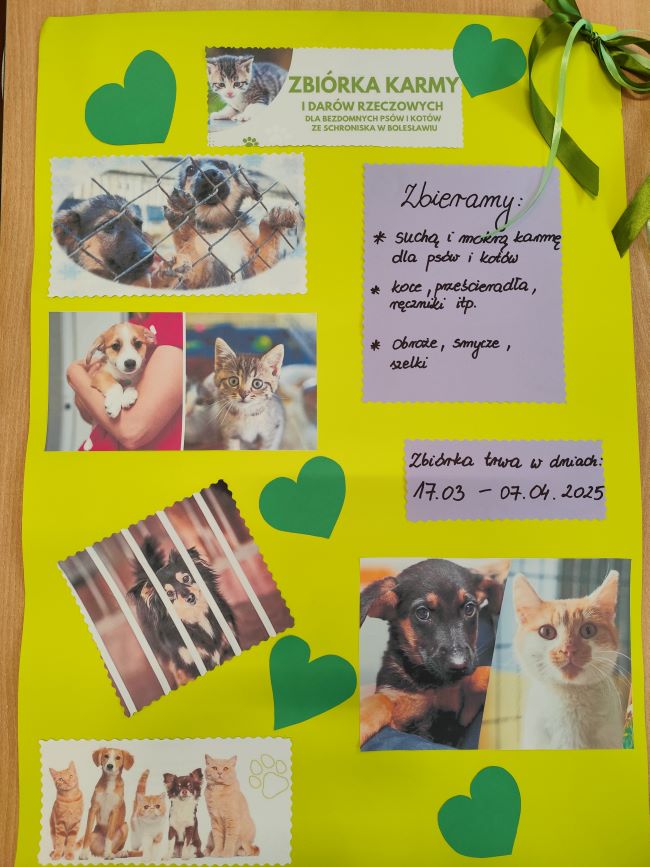 ZBIÓRKA KARMY
I DARÓW RZECZOWYCH
DLA BEZDOMNYCH PSÓW I KOTÓW
ZE SCHRONISKA W BOLESŁAWIU
Zbieramy:
* suchą i mokrą karmę
dla psów i kotów
* koce, prześcieradła,
ręczniki itp.
* obroże, smycze,
szelki
Zbiórka trwa w dniach:
17.03 - 07.04.2025